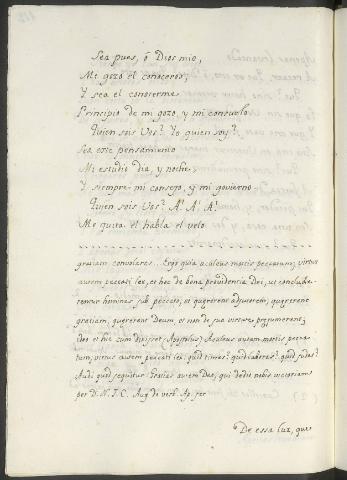 Sea pues, ó Dios mio,
Me gozo el conoceros,
Y sea el conocerme
Principio de mi gozo, y mi consuelo
Quien sois Vos? Yo quien soy?
Sea este pensamiento
Mi estudio dia, y noche,
Y siempre mi consejo, y mi govierno
Quien sois Vos? A! A! A!
Me quita el habla el velo
gratiam convolares... Ergo quia aculeus mortis peccatum; virtus
autem peccati lex, et hoc de bona providentia Dei, ut
homines sub peccato, et quererent adjutorem, quererent
gratiam, quererent Deum, et non de sua virtute presumerent;
ideo et hic cum dixisset (Apostolus) Aculeus autem mortis pecca-
tum, virtus autem peccati lex: quid times? quid laboras? quid sudas?
Audi quid sequitur. Gratias autem Deo, qui dedit nobis victoriam
per D. N. J. C. Aug de verb. Ap. ser
De essa luz, que